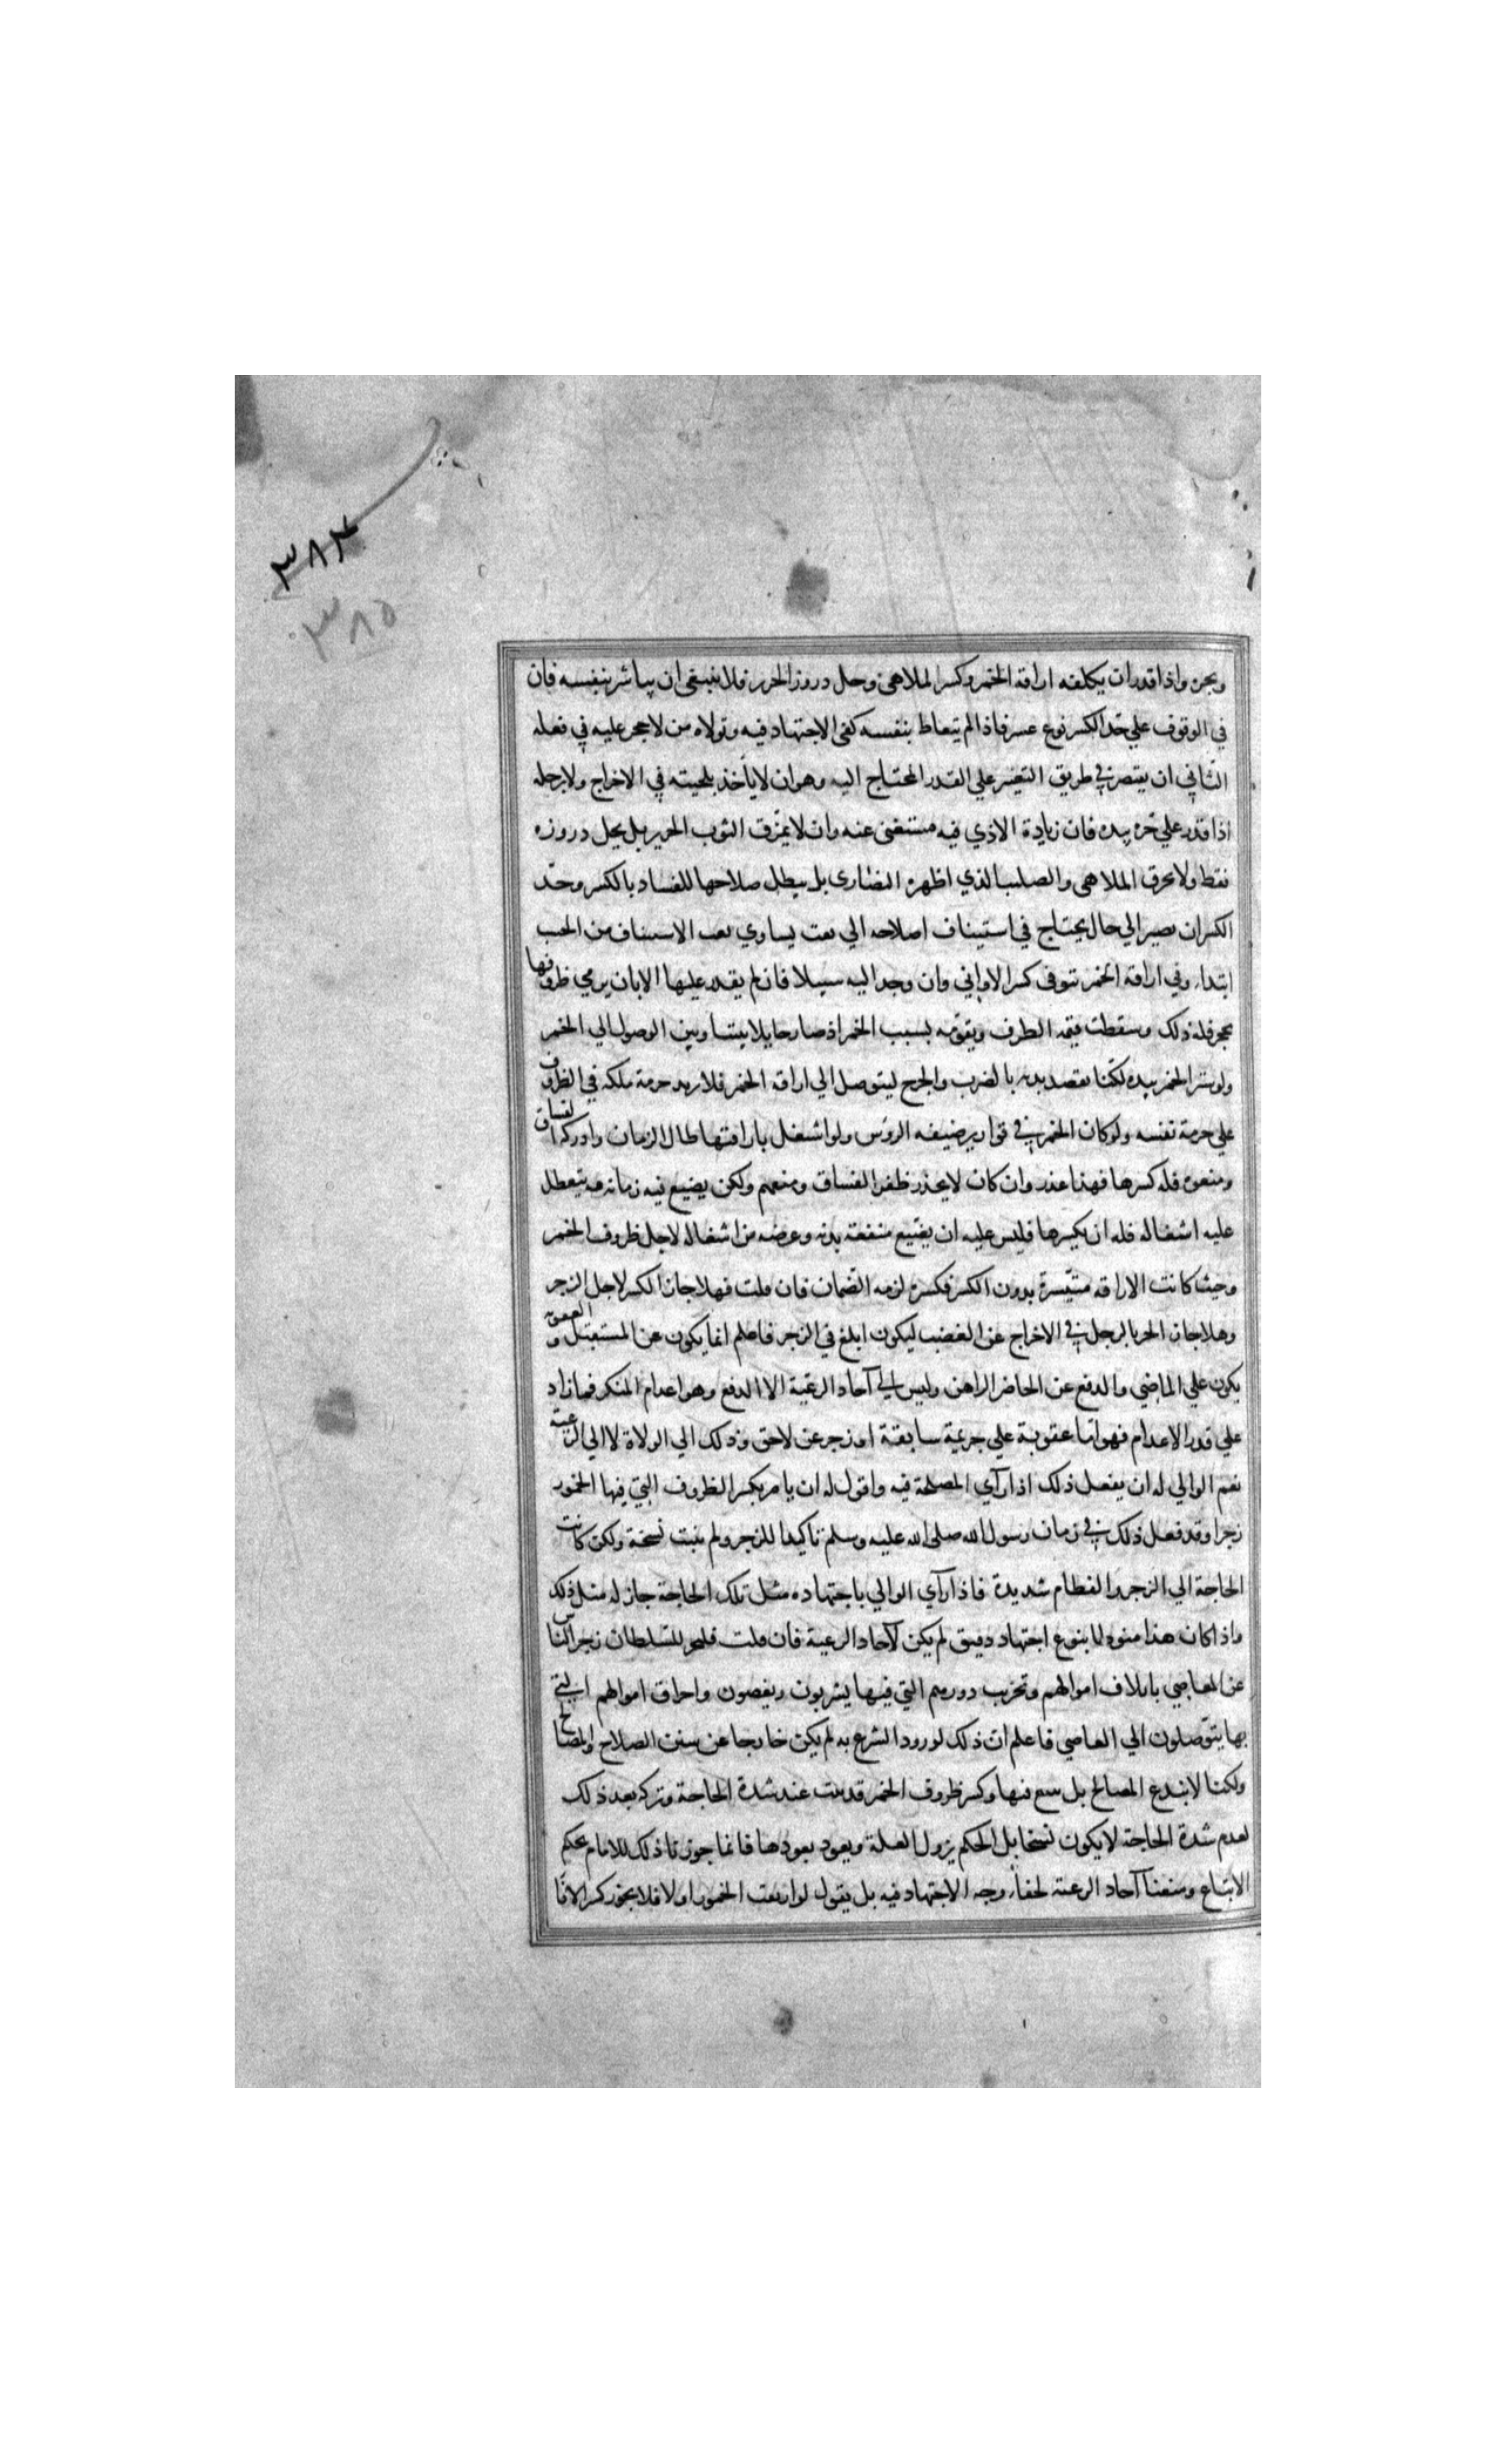 ٣٨٤
٣٨٥
ويجره واذا قدر ان يكلفه اراقة الخمر وكسر الملاهي وحل دروز الحرير فلا ينبغي ان يباشر بنفسه فان
في الوقوف علي حد الكسر نوع عسر فاذا لم يتعاط بنفسه كفي الاجتهاد فيه وتولاه من لا حجر عليه في فعله
الثاني ان يقتصر في طريق التغيير علي القدر المحتاج اليه وهو ان لا يأخذ بلحيته في الاخراج ولا برجله
اذا قدر علي جره بيده فان زيادة الاذي فيه مستغني عنه وان لا يمزق الثوب الحرير بل يحل دروزه
فقط ولا يحرق الملاهي والصليب الذي اظهره النصاري بل يبطل صلاحها للفساد بالكسر وحد
الكسر ان يصير الي حال يحتاج في استيناف اصلاحه الي تعب يساوي تعب الاستيناف من الخشب
ابتداء وفي اراقة الخمر يتوقي كسر الاواني وان وجد اليه سبيلا فان لم يقدر عليها الا بان يرمي ظروفها
بحجر فله ذلك وسقطت قيمة الظرف وتقومه بسبب الخمر اذ صار حايلا بيننا وبين الوصول الي الخمر
ولو ستر الخمر بيده لكنا نقصد بدنه بالضرب والجرح ليتوصل الي اراقة الخمر فلا يزيد حرمة ملكه في الظروف
علي حرمة نفسه ولو كان الخمر في قوارير ضيقه الروس ولو اشتغل باراقتها طال الزمان وادركه الفساق
ومنعوه فله كسرها فهذا عذر وان كان لا يحذر ظفر الفساق ومنعهم ولكن يضيع فيه زمانه ويتعطل
عليه اشغاله فله ان يكسرها فليس عليه ان يضيع منفعة بدنه وغرضه من اشغاله لاجل ظروف الخمر
وحيث كانت الاراقه متيسرة بدون الكسر فكسره لزمه الضمان فان قلت فهلا جاز الكسر لاجل الزجر
وهلا جاز الجر بالرجل في الاخراج عن الغضب ليكون ابلغ في الزجر فاعلم انما يكون عن المستقبل والعقوبه
يكون علي الماضي والدفع عن الحاضر الراهن وليس الي آحاد الرعية الا الدفع وهو اعدام المنكر فما زاد
علي قدر الاعدام فهو اما عقوبة علي جريمة سابقة او زجر عن لاحق وذلك الي الولاة لا الي الرعية
نعم الوالي له ان يفعل ذلك اذا رآي المصلحة فيه واقول له ان يامر بكسر الظروف التي فيها الخمور
زجرا وقد فعل ذلك في زمان رسول الله صلى الله عليه وسلم تاكيدا للزجر ولم يثبت نسخة ولكن كانت
الحاجة الي الزجر والفطام شديدة فاذا رآي الوالي باجتهاده مثل تلك الحاجة جاز له مثل ذلك
واذا كان هذا منوطا بنوع اجتهاد دقيق لم يكن لآحاد الرعية فان قلت فليجز للسلطان زجر الناس
عن المعاصي باتلاف اموالهم وتخريب دورهم التي فيها يشربون ويعصون واحراق اموالهم التي
بها يتوصلون الي المعاصي فاعلم ان ذلك لو ورد الشرع به لم يكن خارجا عن سنن الصلاح والمصالح
ولكنا لا نبتدع المصالح بل نتبع فيها وكسر ظروف الخمر قد ثبت عند شدة الحاجة وتركه بعد ذلك
لعدم شدة الحاجة لا يكون نسخا بل الحكم يزول العلة ويعود بعودها فانما جوزنا ذلك للامام بحكم
الاتباع ومنعنا آحاد الرعية لخفاء وجه الاجتهاد فيه بل يقول لو اريقت الخمور اولا فلا يجوز كسر الاوا